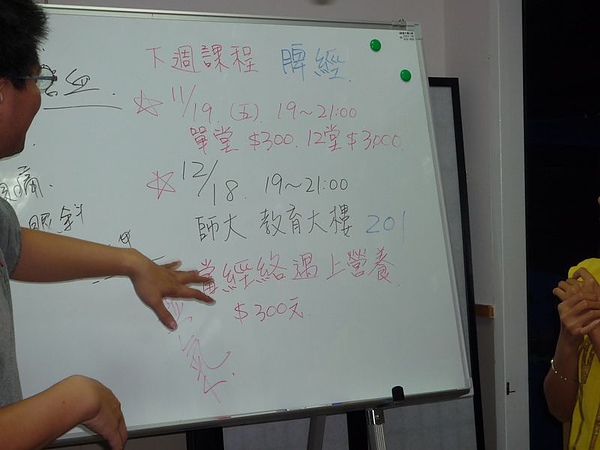 下週課程 脾經.
☆ 11/19 (五) 19~21:00
單堂 $300. 12堂 $3000.
☆ 12/18. 19~21:00
師大 教育大樓 201
當經絡遇上營養.
$300元
痛
眼斜
氣